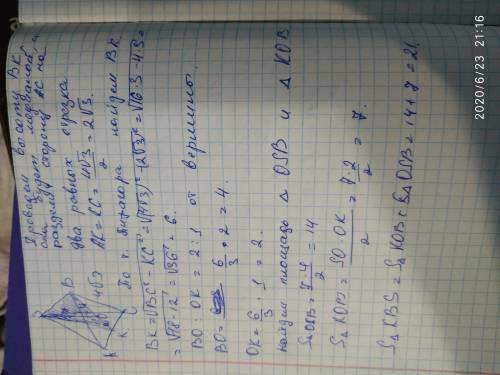 Проведим высоту BK,
она будет медианой и
разделит сторону AC на
два равных отрезка
AK = KC = 4√3/2 = 2√3.
По т. Пифагора найдем BK
BK = √BC² - KC² = √(4√3)² - (2√3)² = √16·3 - 4·3 =
= √48 - 12 = √36 = 6.
BO : OK = 2 : 1 от вершины.
BO = 6/3 · 2 = 4.
OK = 6/3 · 1 = 2.
найдем площадь Δ OSB и Δ KOB
S Δ OSB = 7·4/2 = 14
SO·OK/2 = 7·2/2 = 7.
S Δ KBS = 14 + 7 = 21.
S
B
4√3
K
C
2020/6/23 21:16